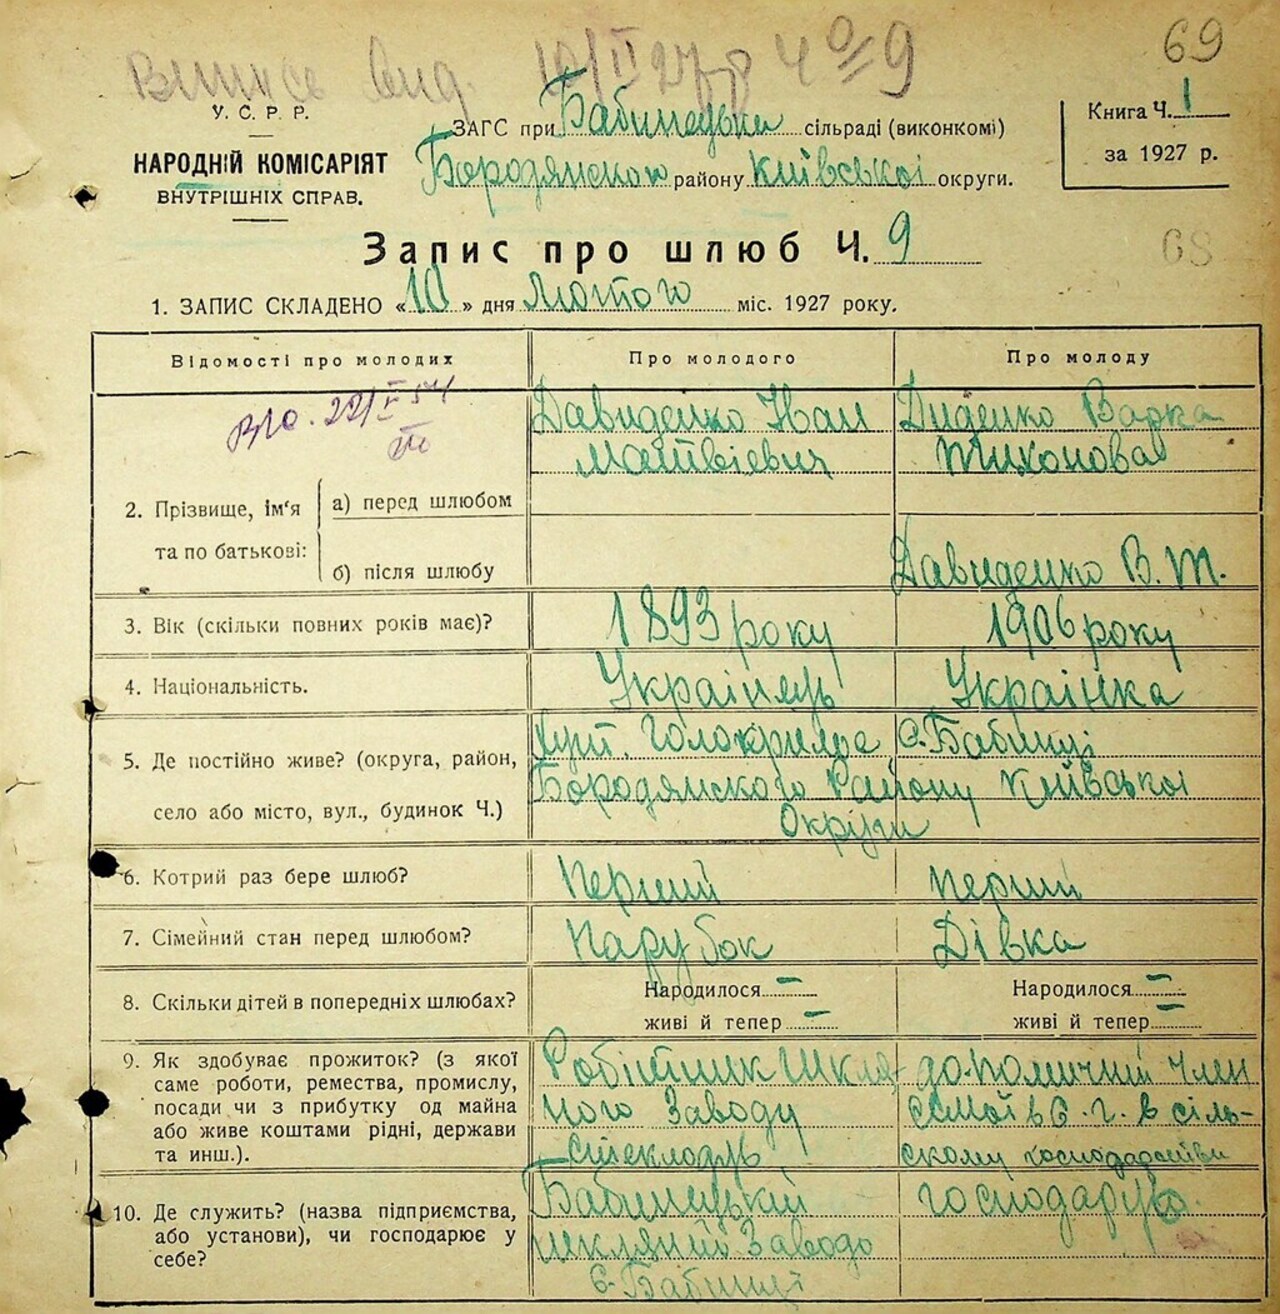 69
Випись вид. 10/II 27 р Ч 9
У. С. Р. Р.
НАРОДНІЙ КОМІСАРІЯТ
ВНУТРІШНІХ СПРАВ.
ЗАГС при Бабинецьки сільраді (виконкомі)
Бородянског району Київської округи.
Книга Ч. 1
за 1927 р.
Запис про шлюб Ч. 9
68
1. ЗАПИС СКЛАДЕНО «10» дня Лютого міс. 1927 року.
Відомості про молодих
Про молодого
Про молоду
22/I 54
2. Прізвище, ім'я та по батькові:
а) перед шлюбом
Давиденко Іван
Матвієвич
Диденко Варка
Тихонова
б) після шлюбу
Давиденко В. Т.
3. Вік (скільки повних років має)?
1893 року
1906 року
4. Національність.
Українець
Українка
5. Де постійно живе? (округа, район,
село або місто, вул., будинок Ч.)
Хут.
с. Бабинці
Бородянского Району Київської
Округи
6. Котрий раз бере шлюб?
перший
перший
7. Сімейний стан перед шлюбом?
парубок
Дівка
8. Скільки дітей в попередніх шлюбах?
Народилося –
живі й тепер –
Народилося –
живі й тепер –
9. Як здобуває прожиток? (з якої
саме роботи, ремества, промислу,
посади чи з прибутку од майна
або живе коштами рідні, держави
та инш.).
Робітник Шкля-
ного Заводу
до-помичний член
в сіль-
скому господарстви
10. Де служить? (назва підприємства,
або установи), чи господарює у
себе?
Бабинецькій
шкляний Заводо
с. Бабинці
господарує